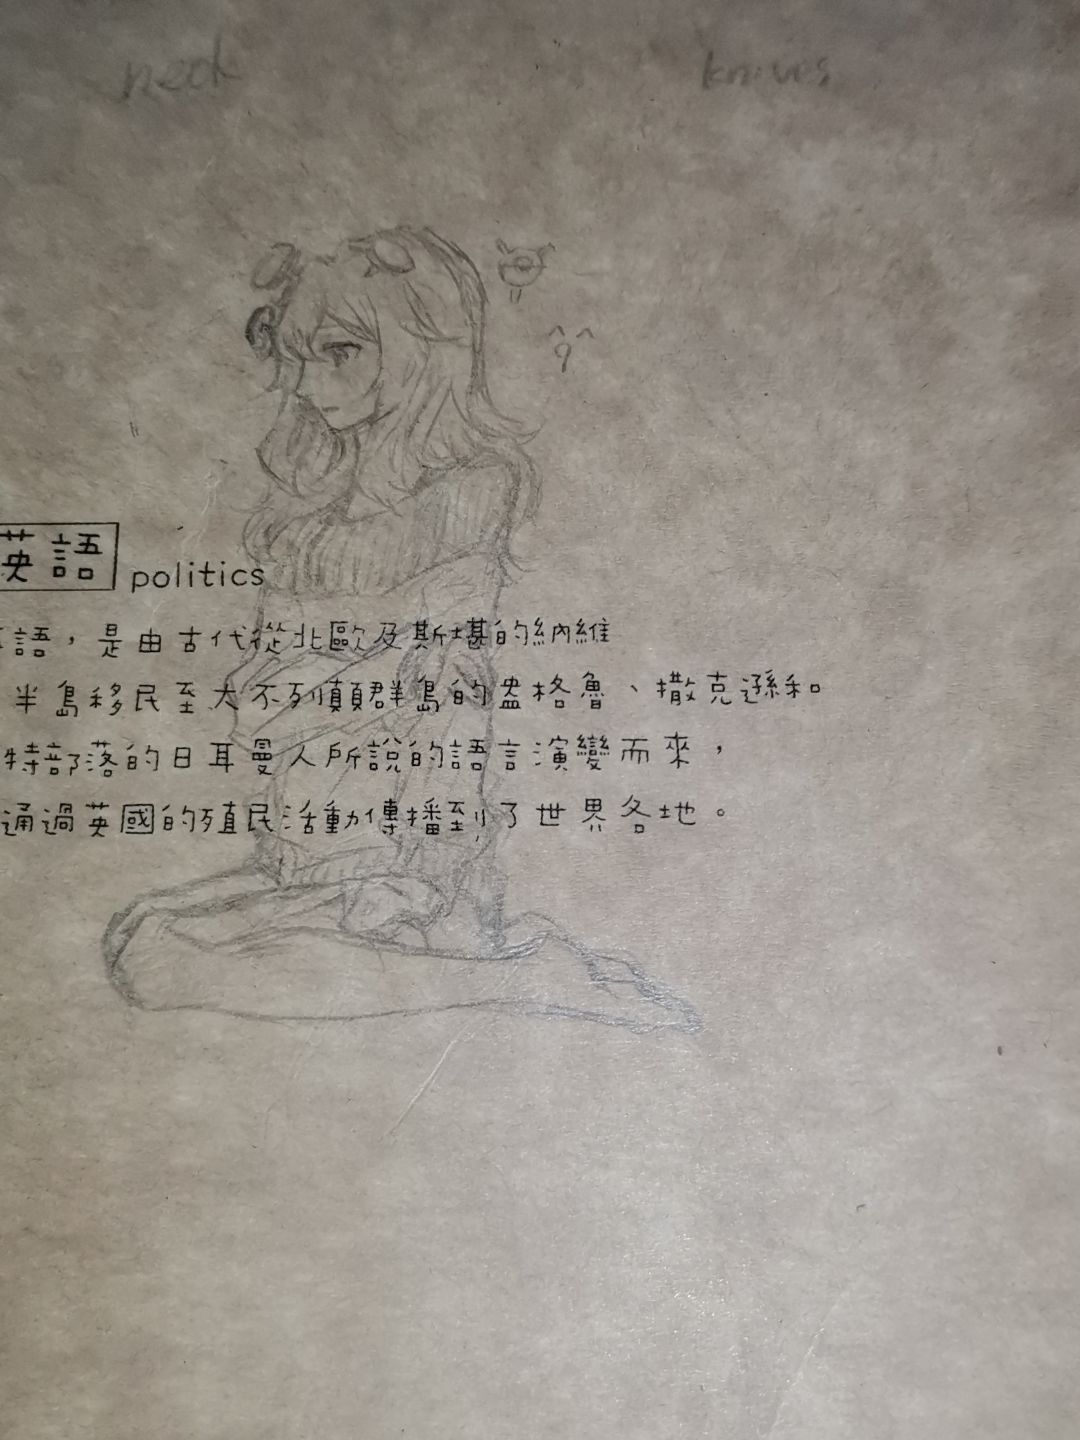 neck knives
英語 politics
語，是由古代從北歐及斯堪的納維
半島移民至大不列顛群島的盎格魯、撒克遜和
特部落的日耳曼人所說的語言演變而來，
通過英國的殖民活動傳播到了世界各地。